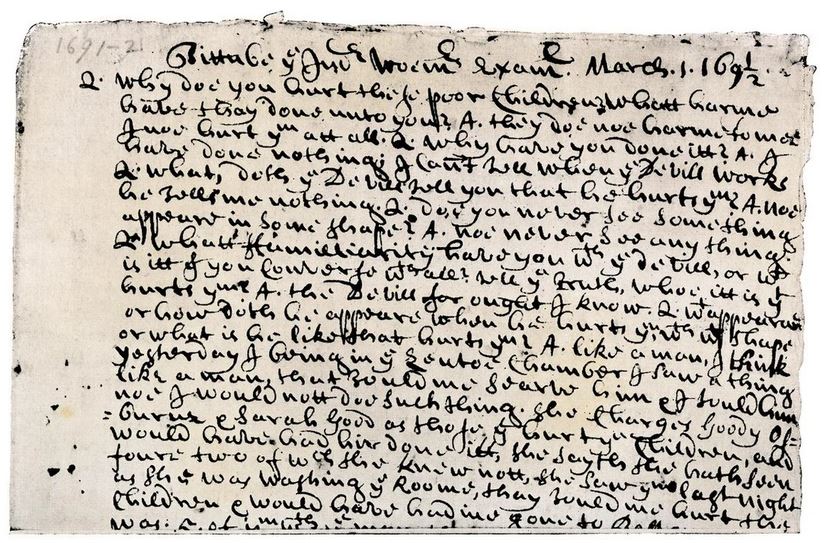 1691-2
Tittabe ye Indn Woemns Examn. March. 1. 1691/2
Q. why doe you hurt these poor Children? whatt harme
have thay done unto you? A. they doe noe harme to mee
I noe hurt ym att all. Q. why have you done itt? A. I
have done nothing; I Can't tell when ye Devill works
Q. what, doth ye Devill tell you that he hurts ym? A. noe
he tells me nothing. Q. doe you never see Something
appeare in Some shape? A. noe never See any thing.
Q. whatt familliarity have you wth ye devill, or wt
is itt yt you Converse wthall? tell ye truth, whoe itt is yt
hurts ym? A. the Devill for ought I know. Q. wt appearanc
or how doth he appeare when he hurts ym, wth wt shape
or what is he like that hurts ym? A. like a man, I think
yesterday I being in ye Lentoe Chamber I saw a thing
like a man, that tould me Searve him & I tould him
noe I would nott doe Such thing. She Charges Goody Os=
=burne & Sarah Good as those yt hurt ye Children, and
would have had hir done itt, She sayth She hath Seen
foure two of wch She Knew nott, She saw ym last night
as She was washing ye Roome, thay tould me hurt the
Children & would have had me gone to